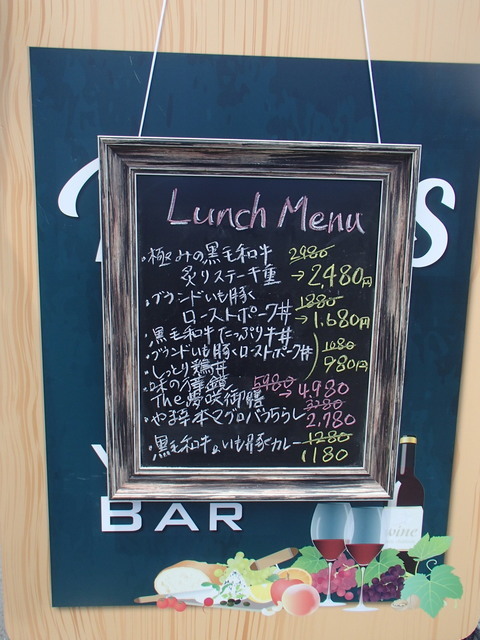 Lunch Menu
・極みの黒毛和牛 2980
炙りステーキ重 →2,480円
・ブランドいも豚く 1880
ローストポーク丼 →1,680円
・黒毛和牛たっぷり牛丼
・ブランドいも豚くローストポーク丼 1080
・しっとり鶏丼 980円
・味の 5980→4,980
The 御膳 3280
・やま幸本マグロバラちらし 2,980
・黒毛和牛&いも豚カレー 1280
1180
BAR
wine